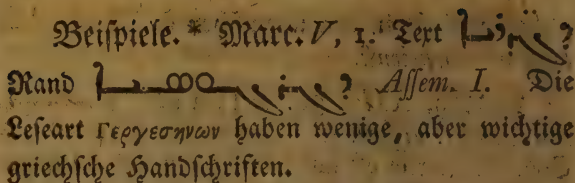 Beiſpiele. * Marc. V, 1. Text
Rand Aſſem. I. Die
Leſeart Γεργεσηνων haben wenige, aber wichtige
griechſche Handſchriften.